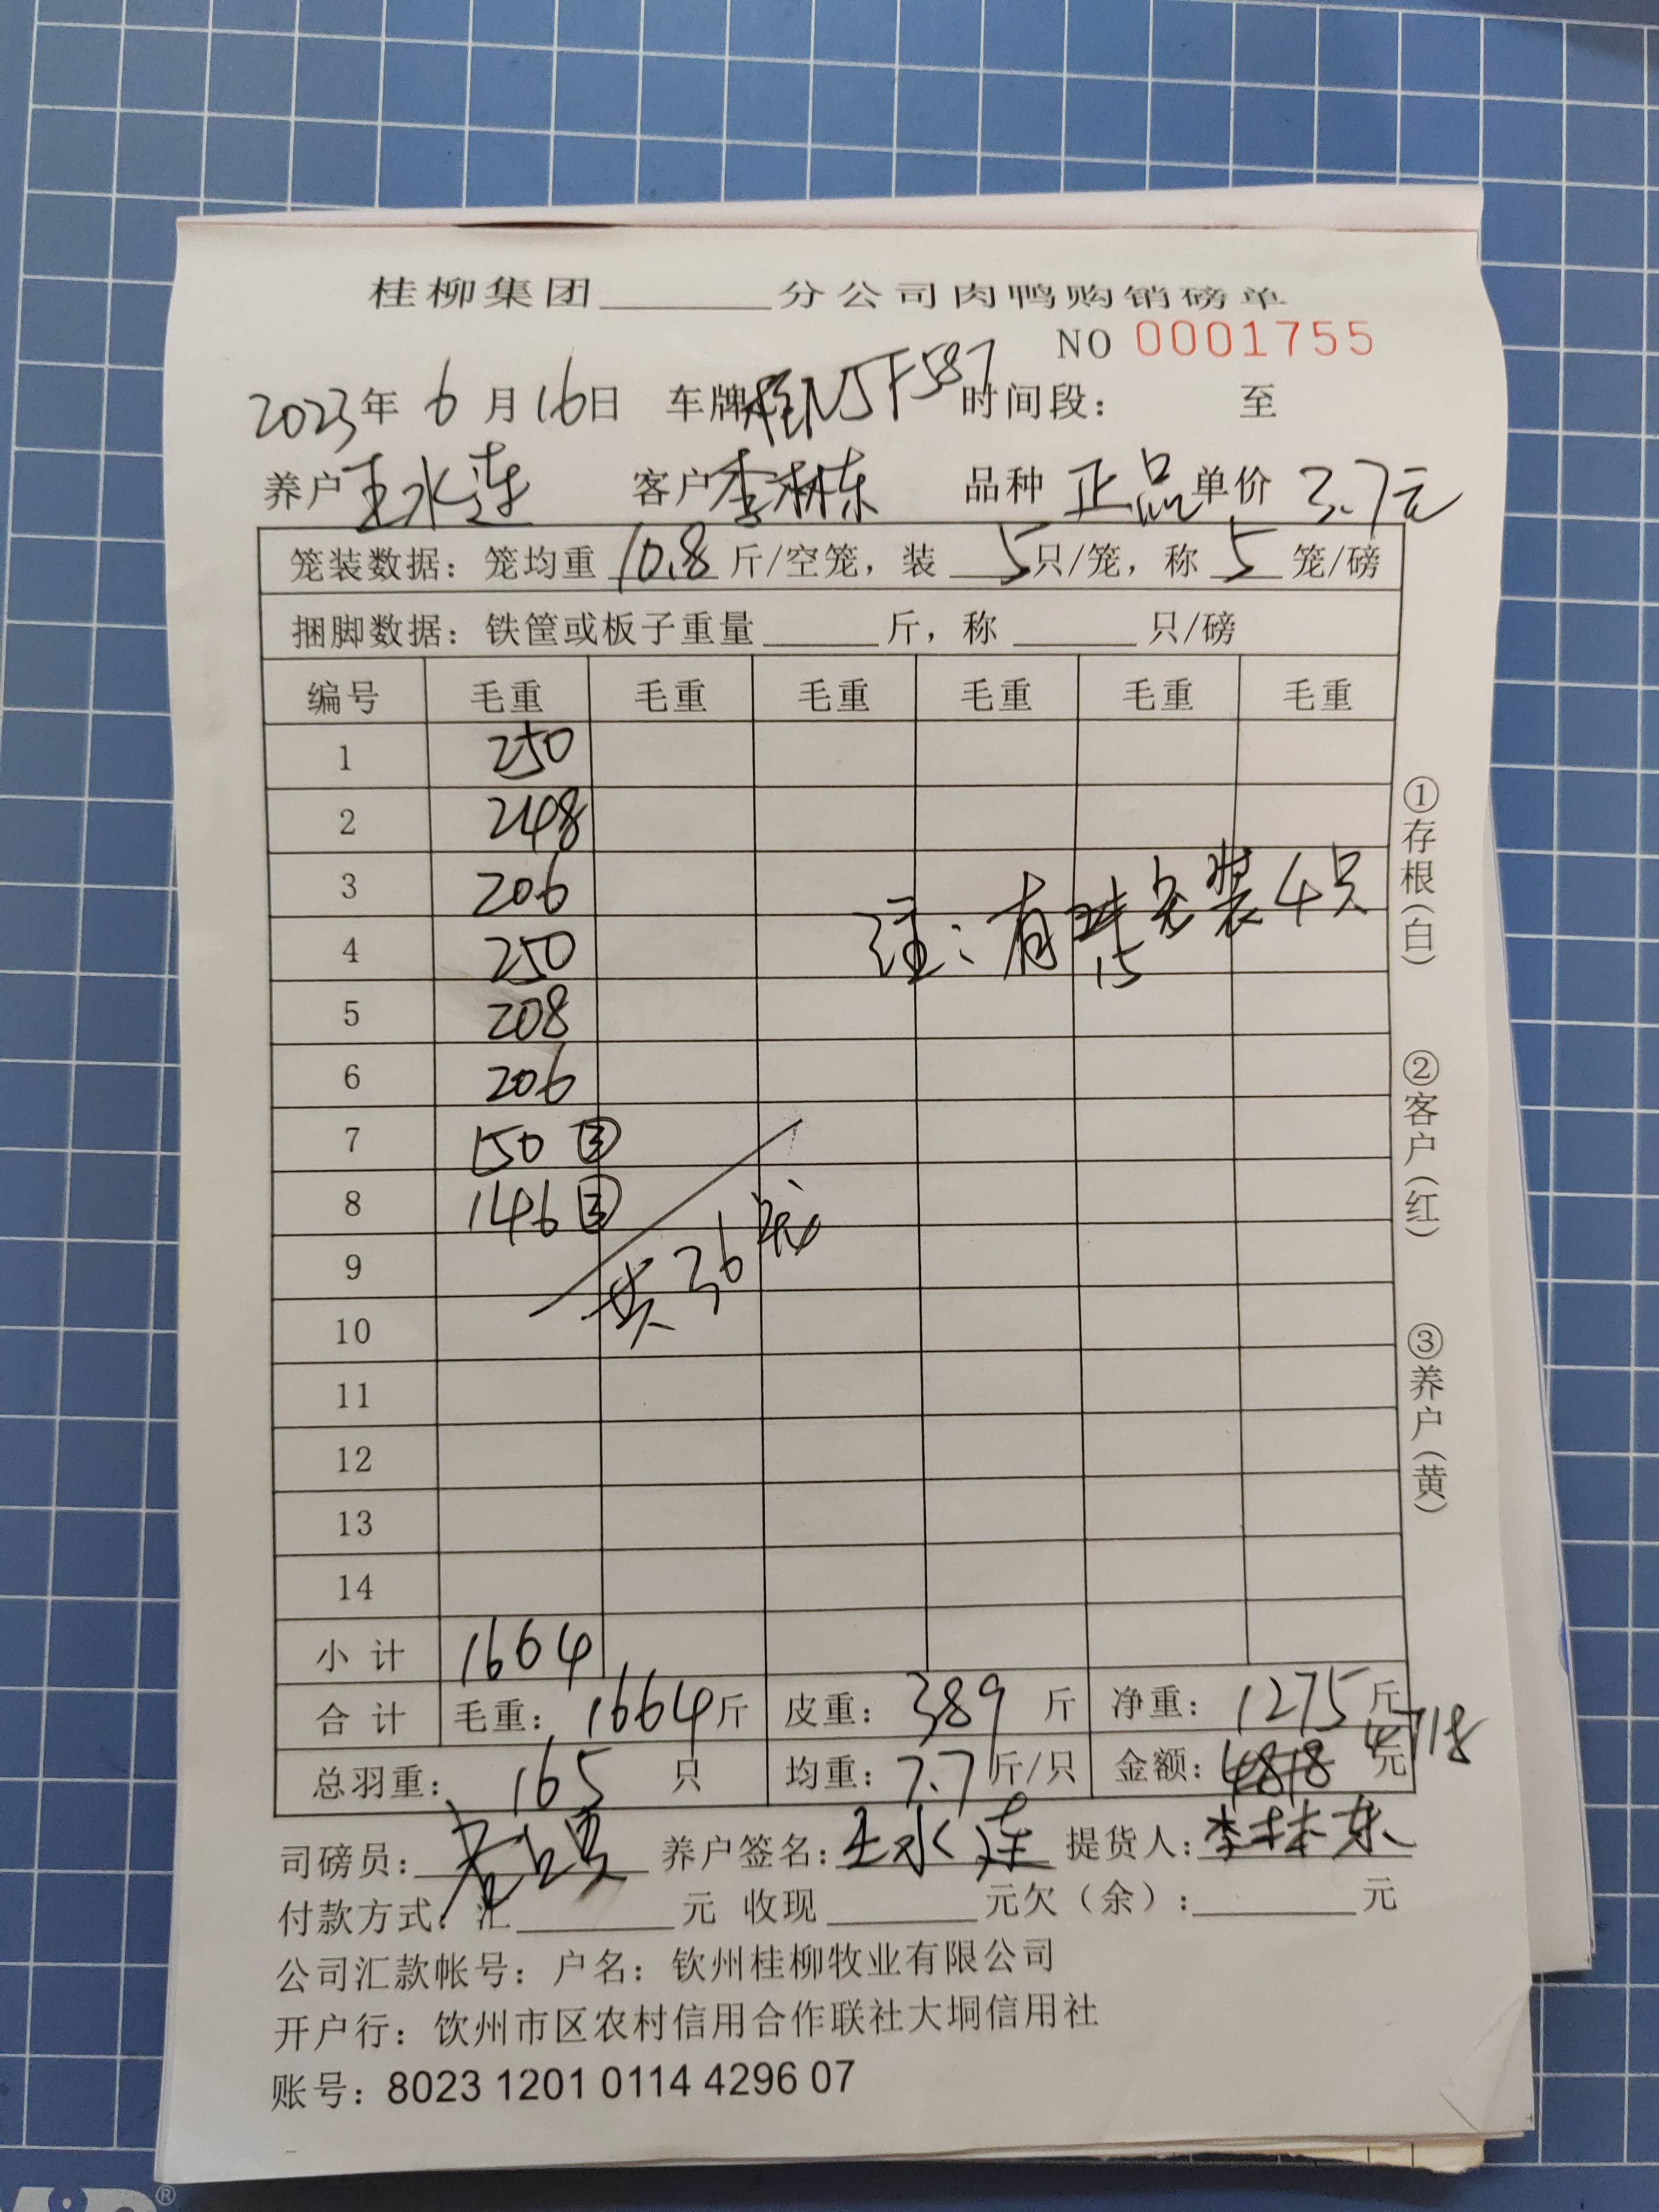 桂柳集团______分公司肉鸭购销磅单
NO 0001755
2023年 6 月 16日 车牌 桂NJF587 时间段： 至
养户 王水连 客户 李林东 品种 正品 单价 3.7元
笼装数据：笼均重 10.8 斤/空笼，装 5 只/笼，称 5 笼/磅
捆脚数据：铁筐或板子重量______斤，称______只/磅
编号 毛重 毛重 毛重 毛重 毛重 毛重
1 250
2 248
3 206
4 250
5 208
6 206
7 150 ③
8 146 ③
9
10
11
12
13
14
注：有 装4只
15
共36笼
小计 1664
合计 毛重：1664斤 皮重：389 斤 净重：1275斤
总羽重：165 只 均重：7.7斤/只 金额：4818 元 4718
司磅员： 养户签名：王水连 提货人：李林东
付款方式：汇______元 收现______元欠（余）：______元
公司汇款帐号：户名：钦州桂柳牧业有限公司
开户行：钦州市区农村信用合作联社大垌信用社
账号：8023 1201 0114 4296 07
①存根（白）
②客户（红）
③养户（黄）